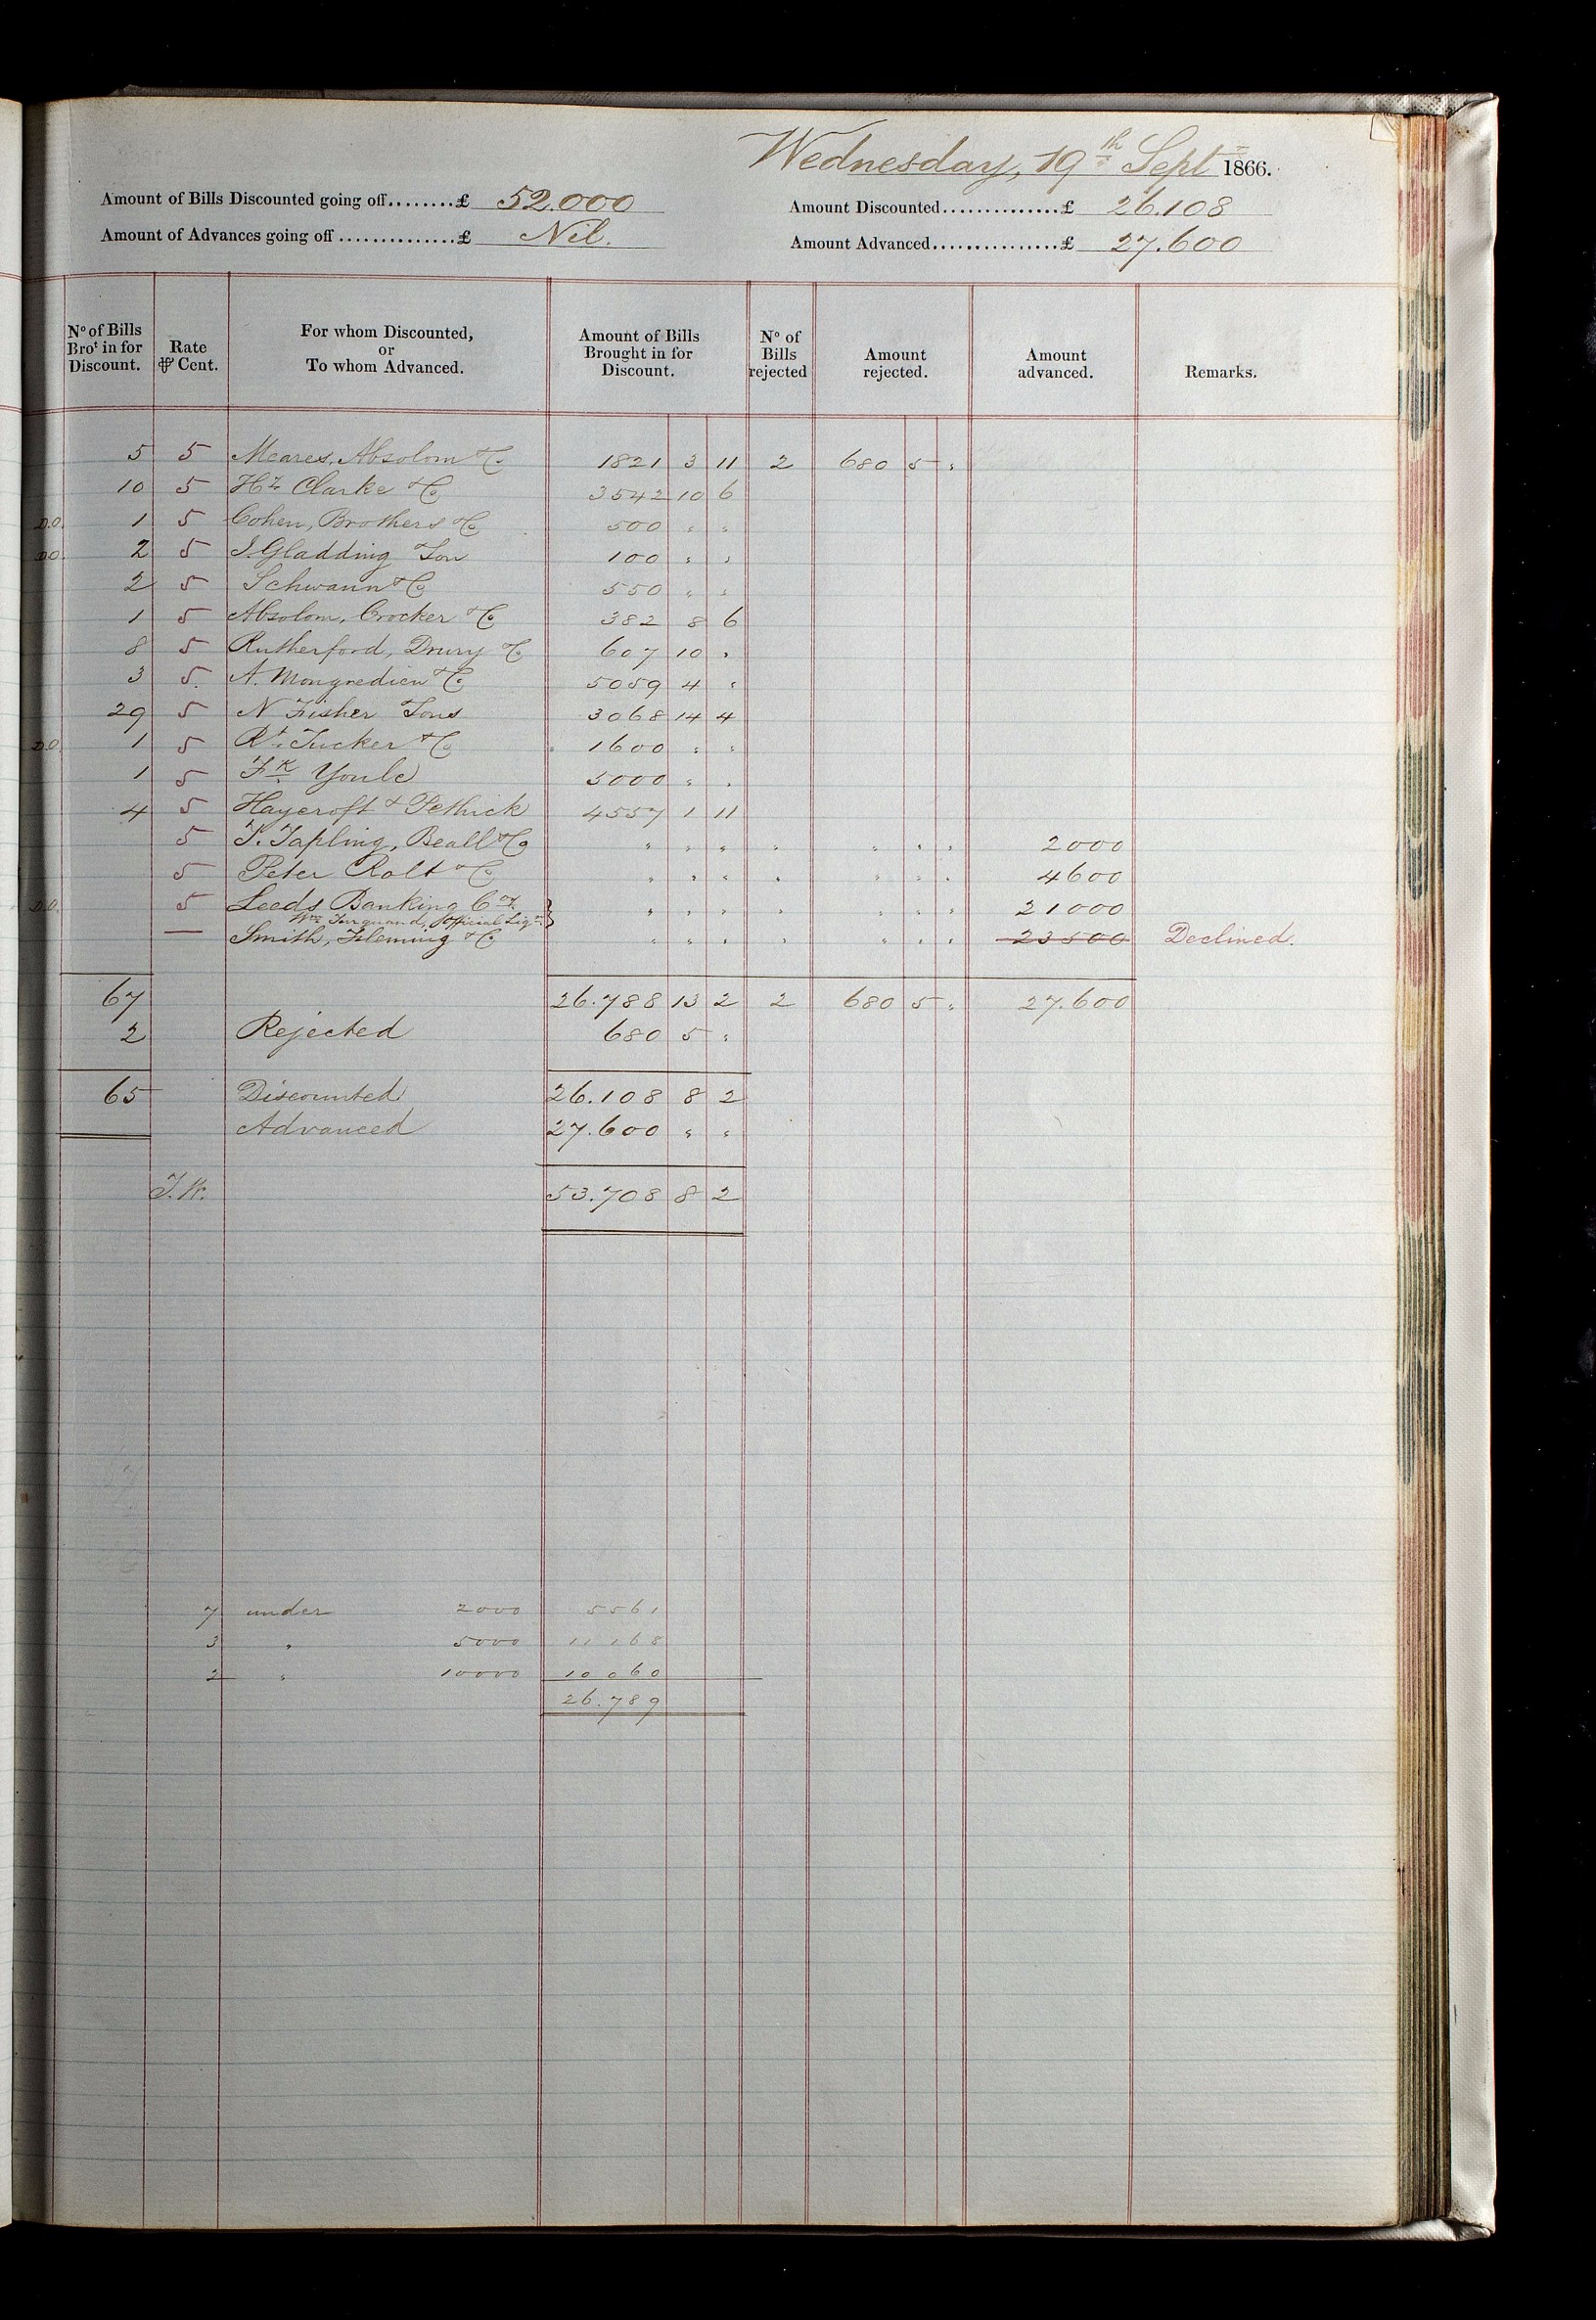 Wednesday, 19th Sept 1866.
Amount of Bills Discounted going off........£ 52.000 Amount Discounted..............£ 26.108
Amount of Advances going off...............£ Nil. Amount Advanced................£ 27.600
No of Bills Brot in for Discount. Rate ⅌ Cent. For whom Discounted, or To whom Advanced. Amount of Bills Brought in for Discount. No of Bills rejected Amount rejected. Amount advanced. Remarks.
5 5 Meares, Absolom & Co 1821 3 11 2 680 5 "
10 5 Hy Clarke & Co 3542 10 6
D.O. 1 5 Cohen, Brothers & Co 500 " "
D.O. 2 5 J. Gladding Son 100 " "
2 5 Schwann & Co 550 " "
1 5 Absolom, Crocker & Co 382 8 6
8 5 Rutherford, Drury & Co 607 10 "
3 5. A. Mongredien & Co 5059 4 "
29 5 N Fisher Sons 3068 14 4
D.O. 1 5 Rt. Tucker & Co 1600 " "
1 5 Fk Youle 5000 " "
4 5 Haycroft & Pethick 4557 1 11
5 T. Tapling, Beall & Co " " " " " " " 2000
5 Peter Rolt & Co " " " " " " " 4600
D.O. 5 Leeds Banking Coy. " " " " " " " 21000
Wm Turquand, Official Liqr
— Smith, Fleming & Co " " " " " " " 23500 Declined.
67 26.788 13 2 2 680 5 " 27.600
2 Rejected 680 5 "
65 Discounted 26.108 8 2
Advanced 27.600 " "
53.708 8 2
7 under 2000 5561
3 " 5000 11168
2 " 10000 10060
26.789